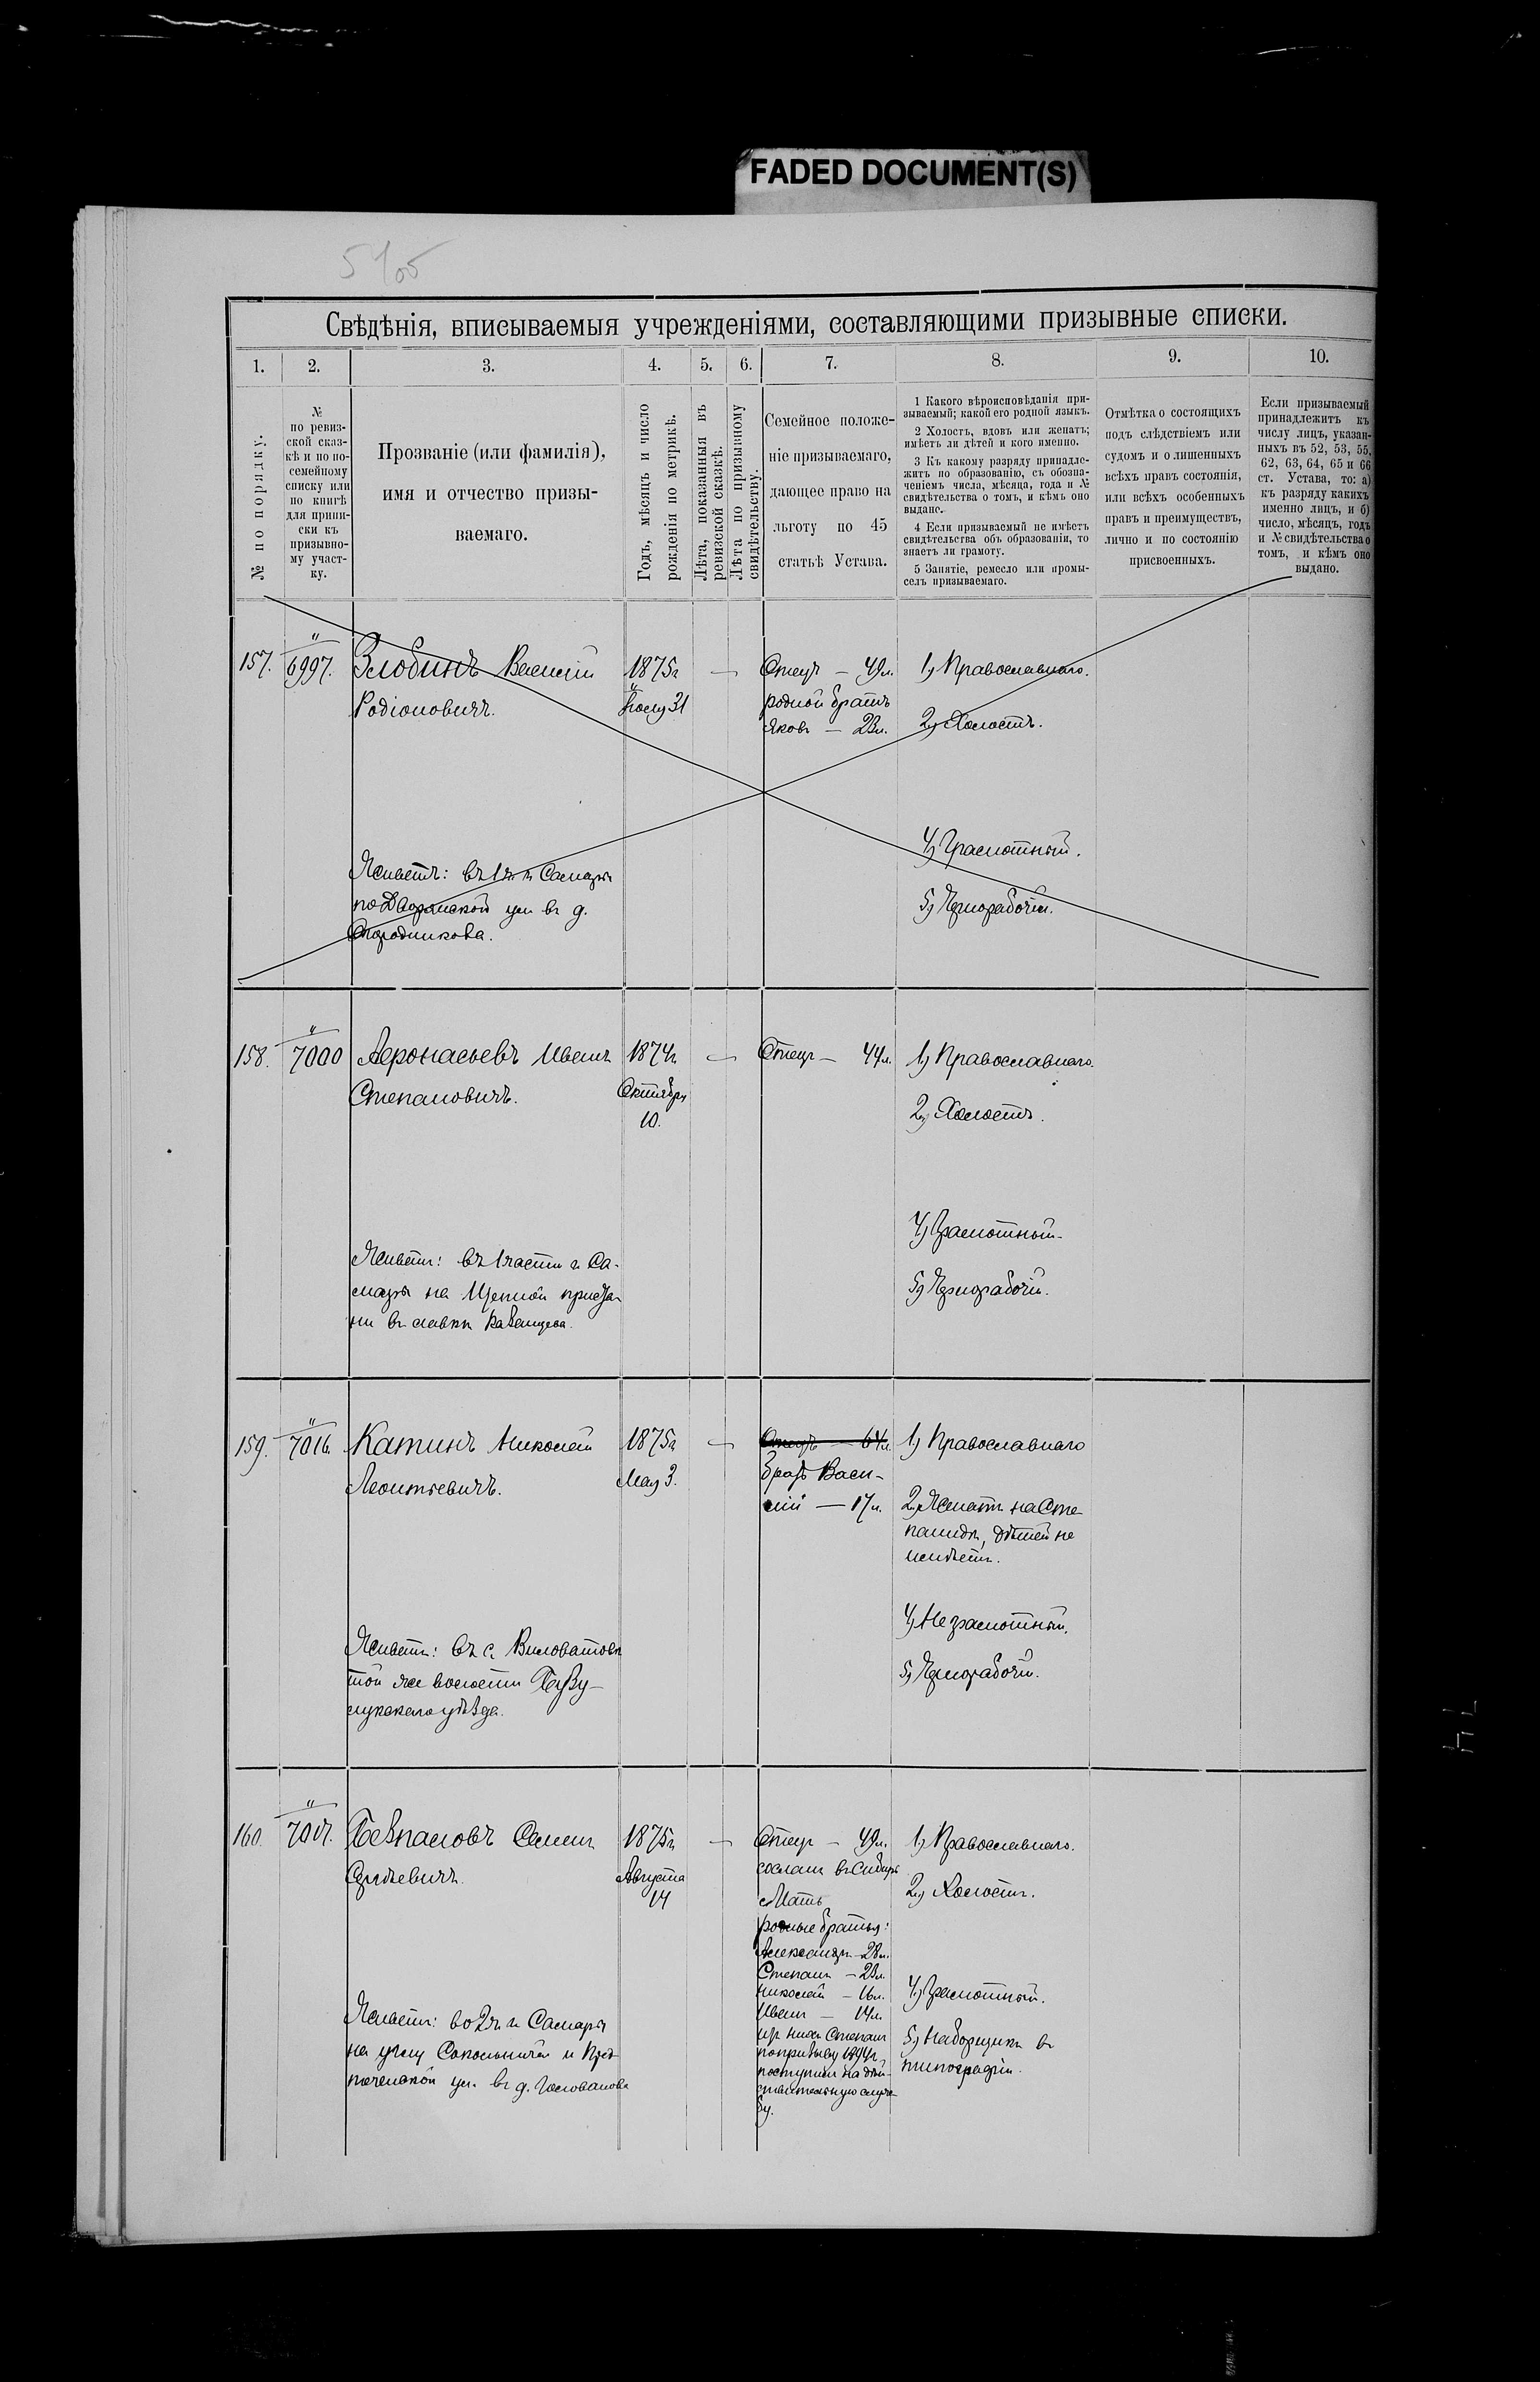 FADED DOCUMENT(S)
Свѣдѣнія, вписываемыя учрежденіями, составляющими призывные списки.
1.
2.
3.
4.
5.
6.
7.
8.
9.
10.
№ по порядку.
№
по ревиз-
ской сказ-
кѣ и по по-
семейному
списку или
по книгѣ
для припи-
ски къ
призывно-
му участ-
ку.
Прозваніе (или фамилія),
имя и отчество призы-
ваемаго.
Годъ, мѣсяцъ и число
рожденія по метрикѣ.
Лѣта, показанныя въ
ревизской сказкѣ.
Лѣта по призывному
свидѣтельству.
Семейное положе-
ніе призываемаго,
дающее право на
льготу по 45
статьѣ Устава.
1 Какого вѣроисповѣданія при-
зываемый; какой его родной языкъ.
2 Холостъ, вдовъ или женатъ;
имѣетъ ли дѣтей и кого именно.
3 Къ какому разряду принадле-
житъ по образованію, съ обозна-
ченіемъ числа, мѣсяца, года и №
свидѣтельства о томъ, и кѣмъ оно
выдано.
4 Если призываемый не имѣетъ
свидѣтельства объ образованіи, то
знаетъ ли грамоту.
5 Занятіе, ремесло или промы-
селъ призываемаго.
Отмѣтка о состоящихъ
подъ слѣдствіемъ или
судомъ и о лишенныхъ
всѣхъ правъ состоянія,
или всѣхъ особенныхъ
правъ и преимуществъ,
лично и по состоянію
присвоенныхъ.
Если призываемый
принадлежитъ къ
числу лицъ, указан-
ныхъ въ 52, 53, 55,
62, 63, 64, 65 и 66
ст. Устава, то: а)
къ разряду какихъ
именно лицъ, и б)
число, мѣсяцъ, годъ
и № свидѣтельства о
томъ, и кѣмъ оно
выдано.
157.
6997.
Злобинъ Василій
Родіоновичъ.
1875г
31
Отецъ — 49л.
родной братъ
Яковъ — 23л.
1) Православнаго.
2) Холостъ.
4) Грамотный.
5) Чернорабочій.
Живетъ: въ 1 ч. г. Самары
по Дворянской ул. въ д.
158.
7000
Афонасьевъ Иванъ
Степановичъ.
1874г
Октября
10.
Отецъ — 44л.
1) Православнаго.
2) Холостъ.
4) Грамотный.
5) Чернорабочій.
Живетъ: въ 1 части г. Са-
мары на Щепной приста
ни въ лавкѣ
159.
7016.
Катинъ Николай
Леонтьевичъ.
1875г
Мая 3.
Отецъ — 64л.
Братъ Васи-
лій — 17л.
1) Православнаго
2) Женатъ на Сте-
панидѣ, дѣтей не
имѣетъ.
4) Неграмотный.
5) Чернорабочій.
Живетъ: въ с. Виловатовѣ
той же волости Бузу-
лукскаго уѣзда.
160.
7017.
Безпаловъ Семенъ
Сергѣевичъ.
1875г
Августа
14
Отецъ — 49л.
сосланъ въ Сибирь
Мать
родные братья:
Александръ — 28л.
Степанъ — 23л.
Николай — 16л.
Иванъ — 14л.
изъ нихъ Степанъ
по призыву 1894г.
поступилъ на дѣй-
ствительную служ-
бу.
1) Православнаго.
2) Холостъ.
4) Грамотный.
5) Наборщикъ въ
типографіи.
Живетъ: во 2 ч. г. Самары
на углу Сокольничей и Пред-
теченской ул. въ д. Голованова